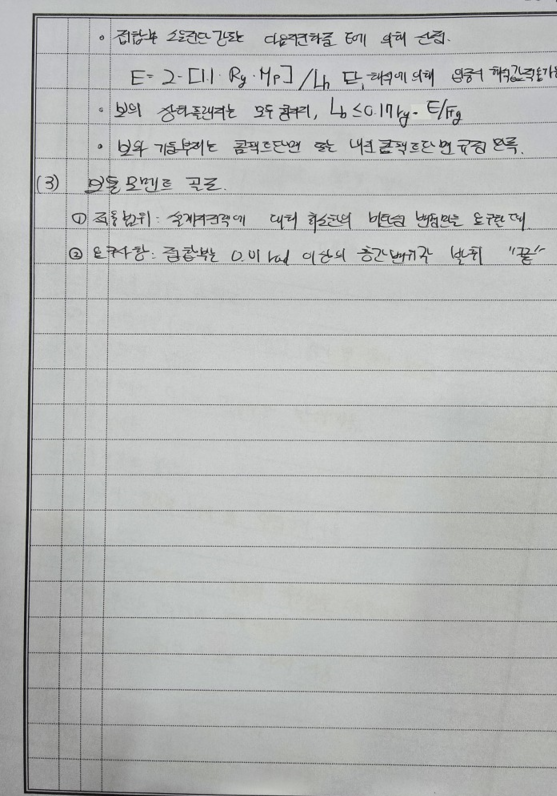 • 접합부 소요전단강도는 다음지진하중 E에 의해 산정.
E = 2·[1.1·Ry·Mp]/Lh 단, 해석에 의해
• 보의 상하플랜지는 모두 횡지지, Lb ≤ 0.17 ry·E/Fy
• 보와 기둥부재는 콤팩트단면 또는 내진콤팩트단면 규정 만족.
(3) 보통모멘트 골조.
① 적용범위: 설계지진력에 대해 최소한의 비탄성 변형만을 요구할 때
② 요구사항: 접합부는 0.01 rad 이상의 층간변위각 발휘 "끝"